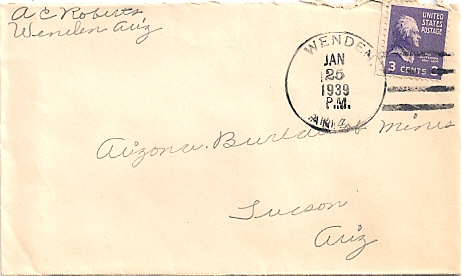 A C Roberts
Wenden Ariz
WENDEN
JAN
25
1939
P.M.
ARIZ.
UNITED
STATES
POSTAGE
3 CENTS
Arizona. Bureau of Mines
Tucson
Ariz